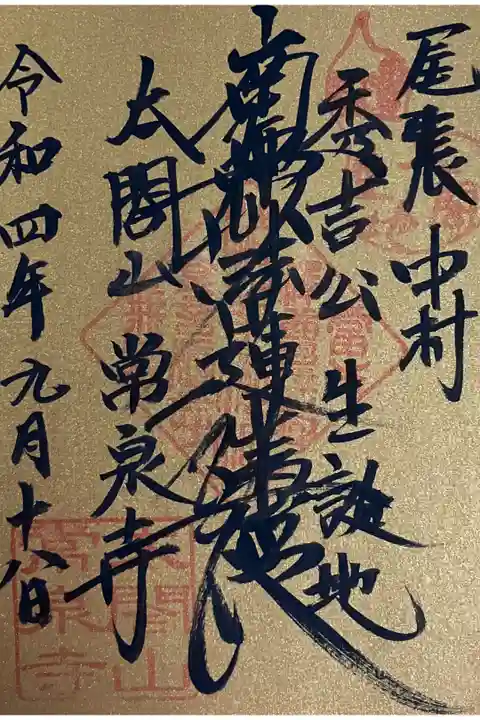 尾張 中村
秀吉公 生誕地
南無妙法蓮華経
太閤山 常泉寺
令和四年九月十八日
太閤山
常泉寺